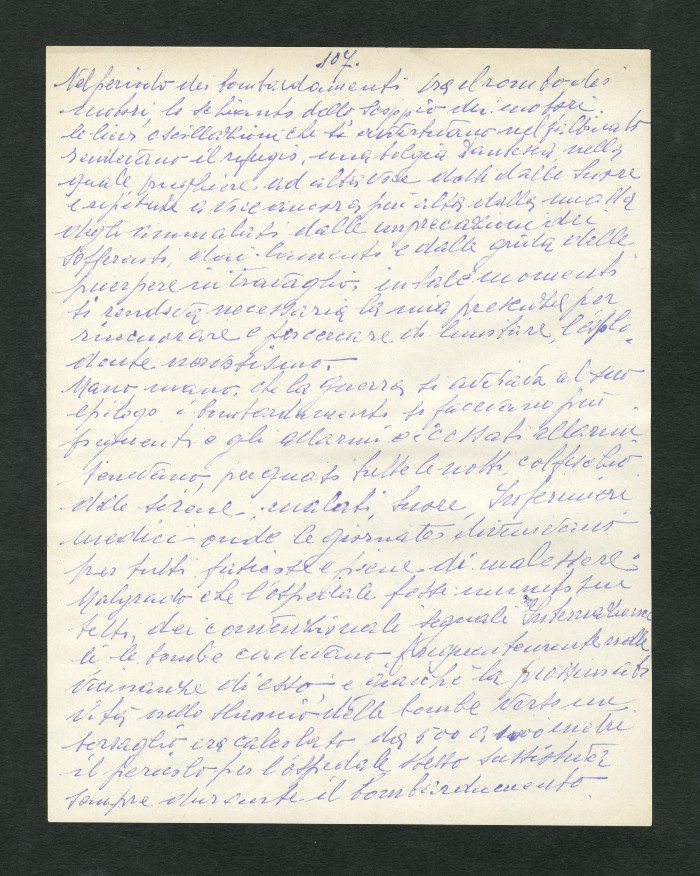 107.
Nel periodo dei bombardamenti era il rombo dei
motori, lo schianto dello scoppio dei motori.
le lievi oscillazioni che si avvertivano nel fabbricato
rendevano il rifugio, una bolgia Dantesca, nella
quale preghiere ad alta voce dette dalle Suore
e ripetute a voce ancora più alta dalla massa
degli ammalati dalle imprecazioni dei
sofferenti, dai lamenti e dalle grida delle
puerpere in travaglio, in tale momenti
si rendeva necessaria la mia presenza per
rincuorare e per cercare di limitare, l'esplo-
dente nervosismo.
Mano mano, che la guerra si avviava al suo
epilogo i bombardamenti si facevano più
frequenti e gli allarmi e i cessati allarmi
tenevano, per quasi tutte le notti, col fischio
delle sirene, malati, Suore, Infermieri
medici onde le giornate divenivano
per tutti faticose e piene di malessere.
Malgrado che l'ospedale fosse munito sui
tetti, dei convenzionali segnali Internaziona
li le bombe cadevano frequentemente nelle
vicinanze di esso e giacchè la prossimità
vita nello slancio delle bombe verso un
bersaglio era calcolato da 500 a 1000 metri
il pericolo per l'ospedale stesso sussisteva
sempre durante il bombardamento.